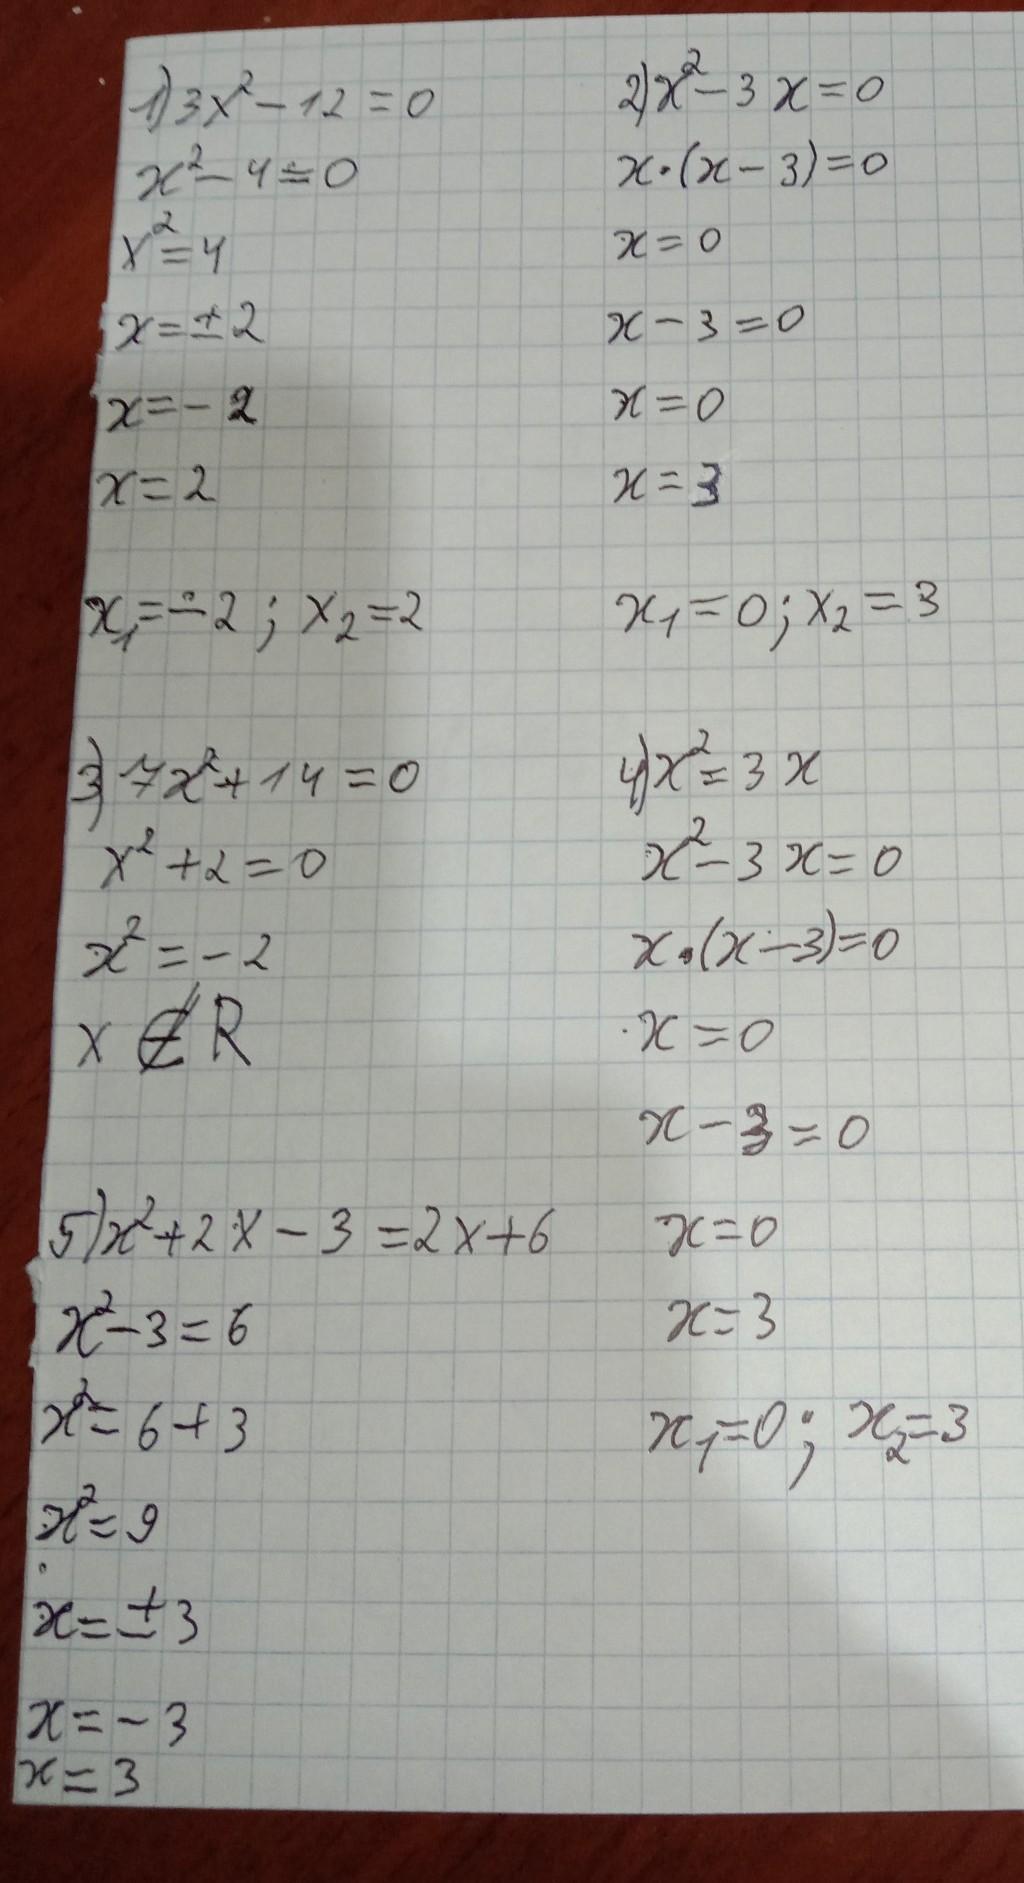 1) 3x² - 12 = 0
x² - 4 = 0
x² = 4
x = ± 2
x = - 2
x = 2
x₁ = - 2 ; x₂ = 2
2) x² - 3x = 0
x · (x - 3) = 0
x = 0
x - 3 = 0
x = 0
x = 3
x₁ = 0 ; x₂ = 3
3) 7x² + 14 = 0
x² + 2 = 0
x² = - 2
x ∉ R
4) x² = 3x
x² - 3x = 0
x · (x - 3) = 0
x = 0
x - 3 = 0
x = 0
x = 3
x₁ = 0 ; x₂ = 3
5) x² + 2x - 3 = 2x + 6
x² - 3 = 6
x² = 6 + 3
x² = 9
x = ± 3
x = - 3
x = 3